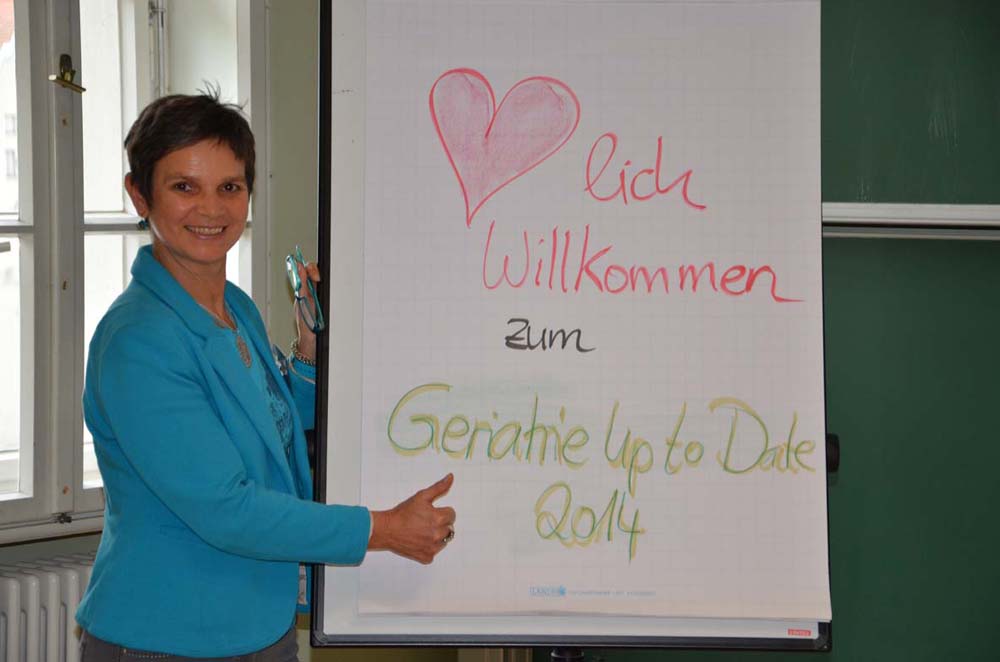 lich
Willkommen
zum
Geriatrie Up to Date
2014